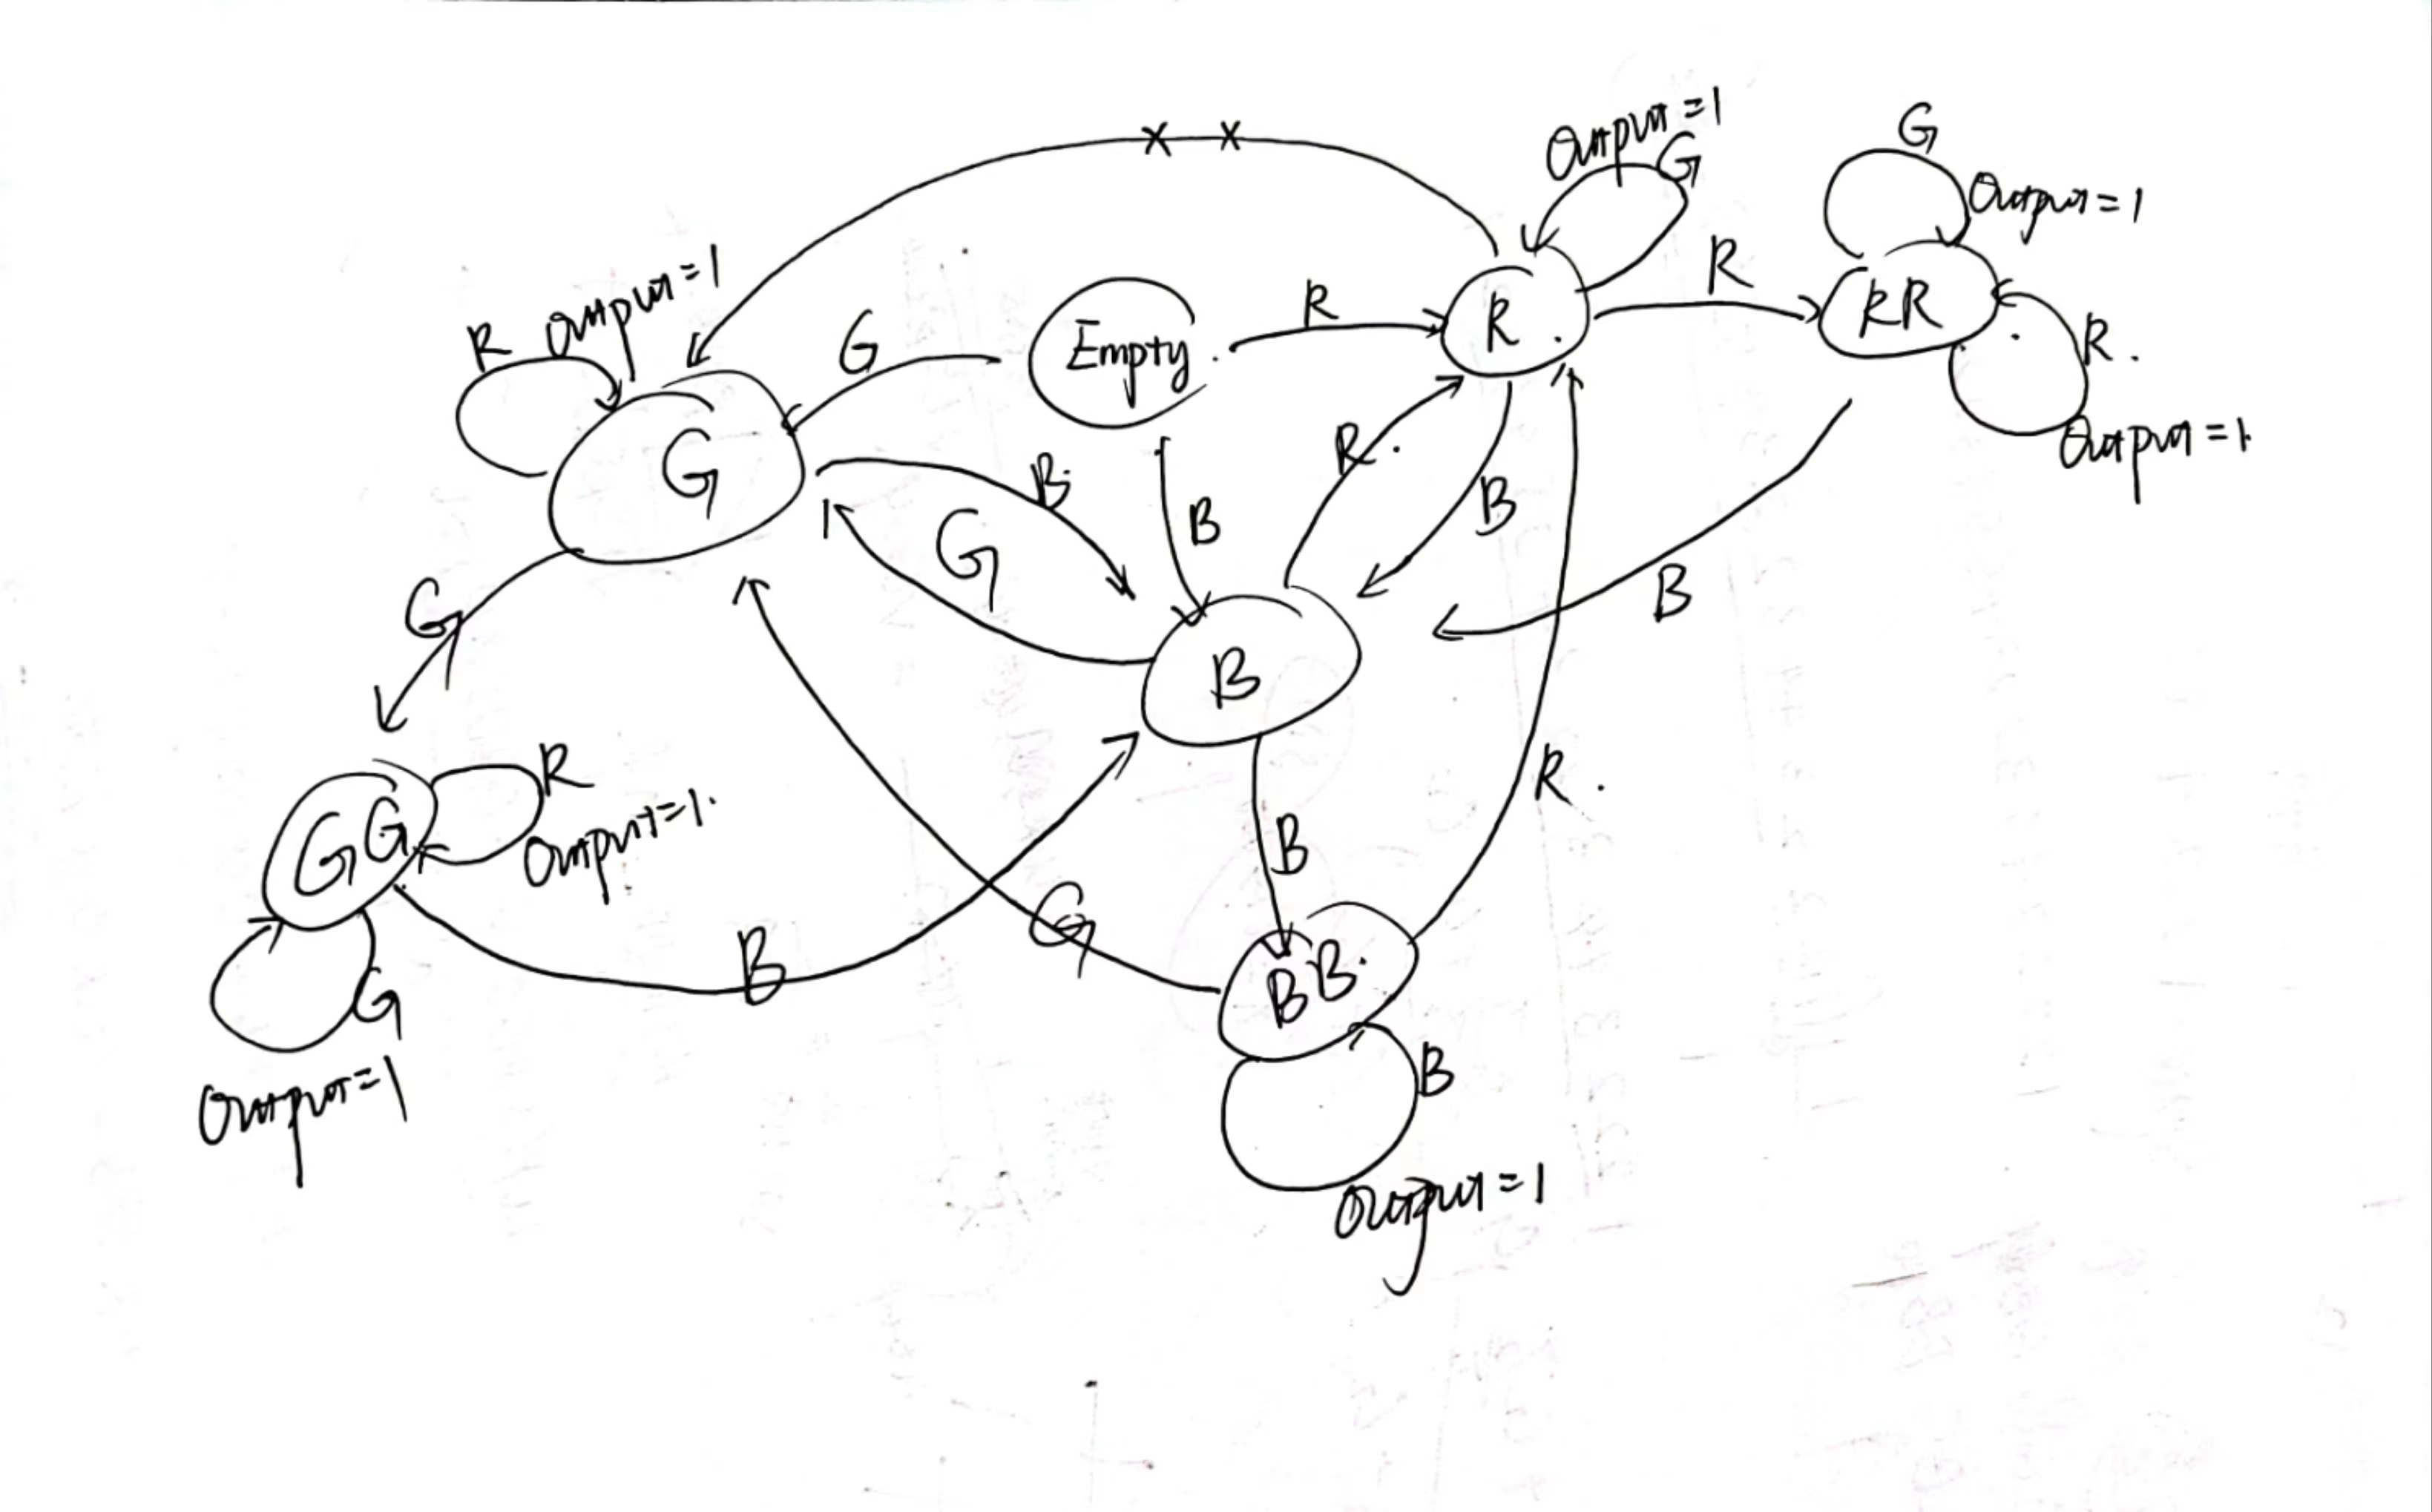 Output=1
G
G
Output=1
x x
R
R
R Output=1
G
Empty
R
RR
R
Output=1
G
B
R
B
B
G
B
G
B
R
Output=1
GG
B
R
G
B
BB
G
Output=1
B
Output=1